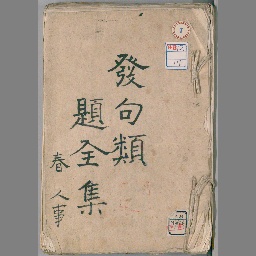 發句類
題全集
春 人事